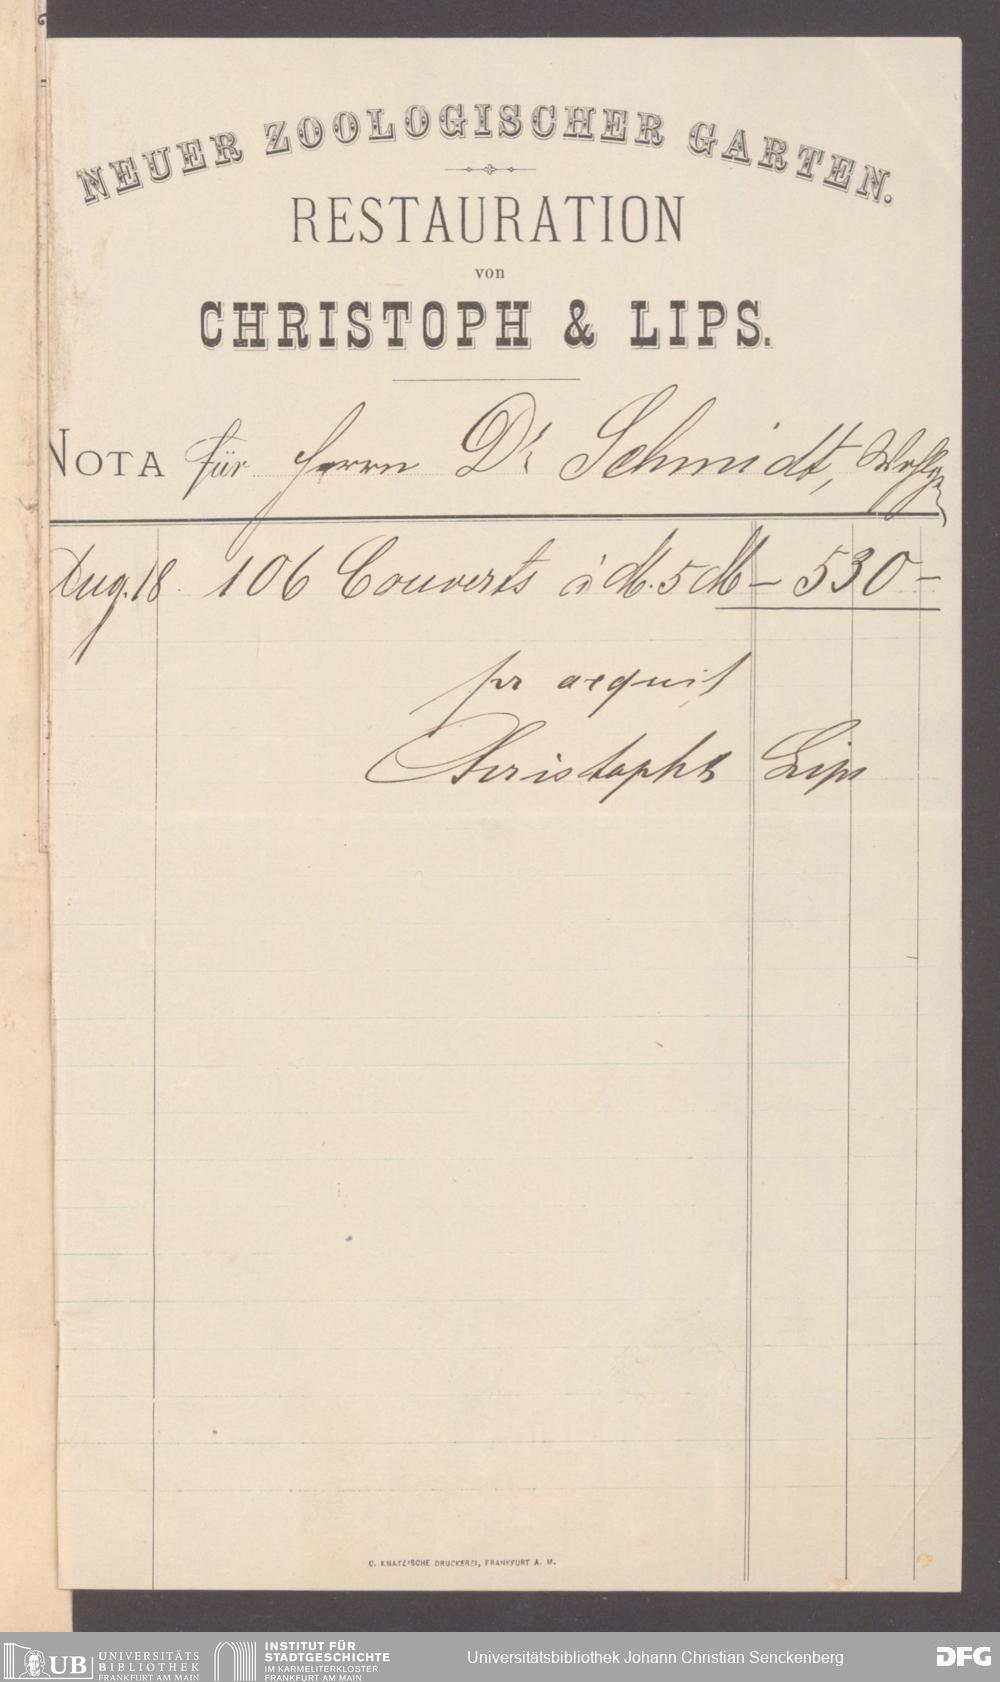 NEUER ZOOLOGISCHER GARTEN.
RESTAURATION
von
CHRISTOPH & LIPS.
NOTA für Herrn Dr Schmidt, Wohlg.
Aug. 18. 106 Couverts à M. 5 M – 530 –
pr acquit
Christoph & Lips
C. KNATZ'SCHE DRUCKEREI, FRANKFURT A. M.
UB UNIVERSITÄTS
BIBLIOTHEK
FRANKFURT AM MAIN
INSTITUT FÜR
STADTGESCHICHTE
IM KARMELITERKLOSTER
FRANKFURT AM MAIN
Universitätsbibliothek Johann Christian Senckenberg
DFG